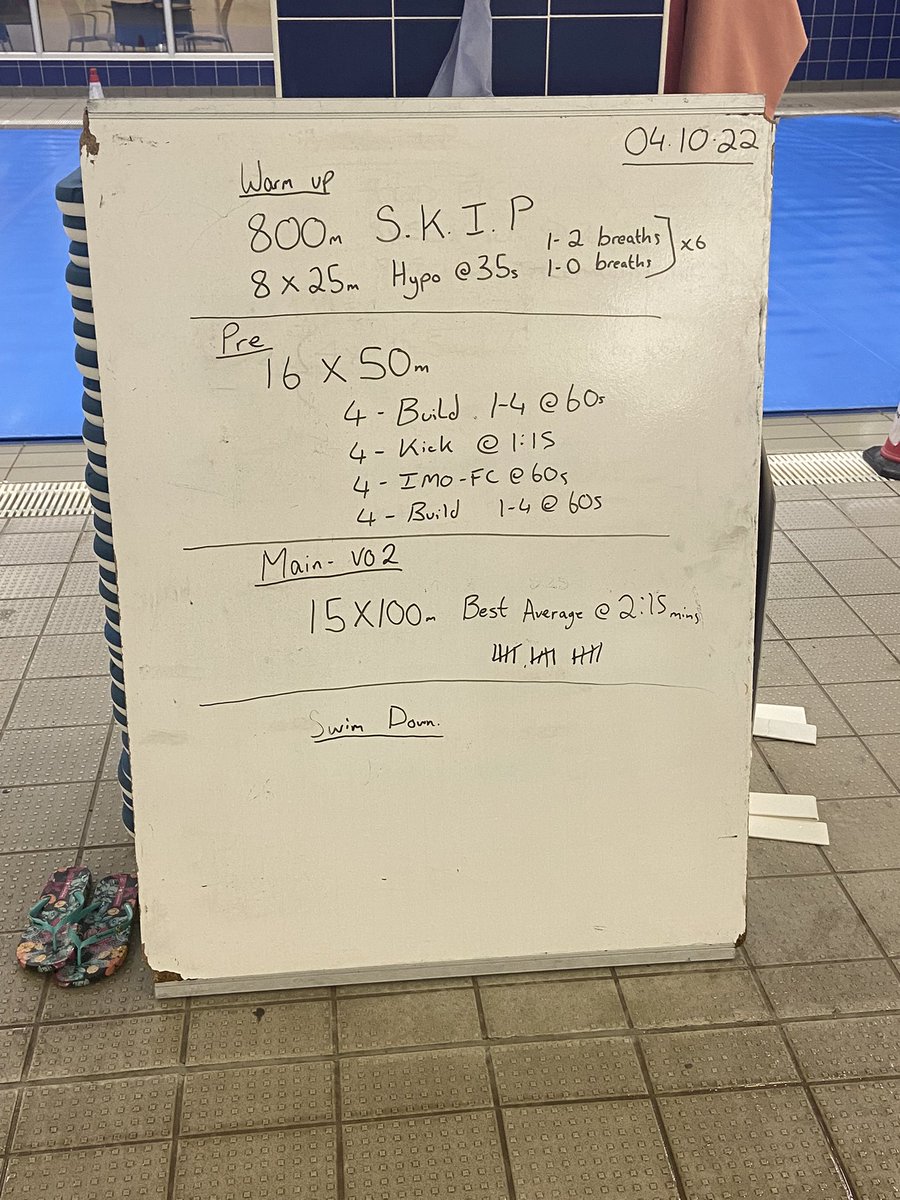 04.10.22
Warm up
800m S.K.I.P
8 x 25m Hypo @ 35s 1-2 breaths
1-0 breaths x6
Pre
16 x 50m
4 - Build 1-4 @ 60s
4 - Kick @ 1:15
4 - IMO - FC @ 60s
4 - Build 1-4 @ 60s
Main - VO2
15 x 100m Best Average @ 2:15 mins
Swim Down.